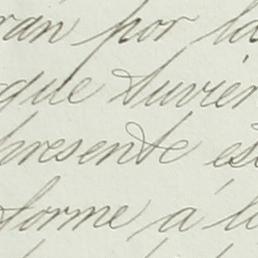 ran por la
que tuvier
presente est
forme á l